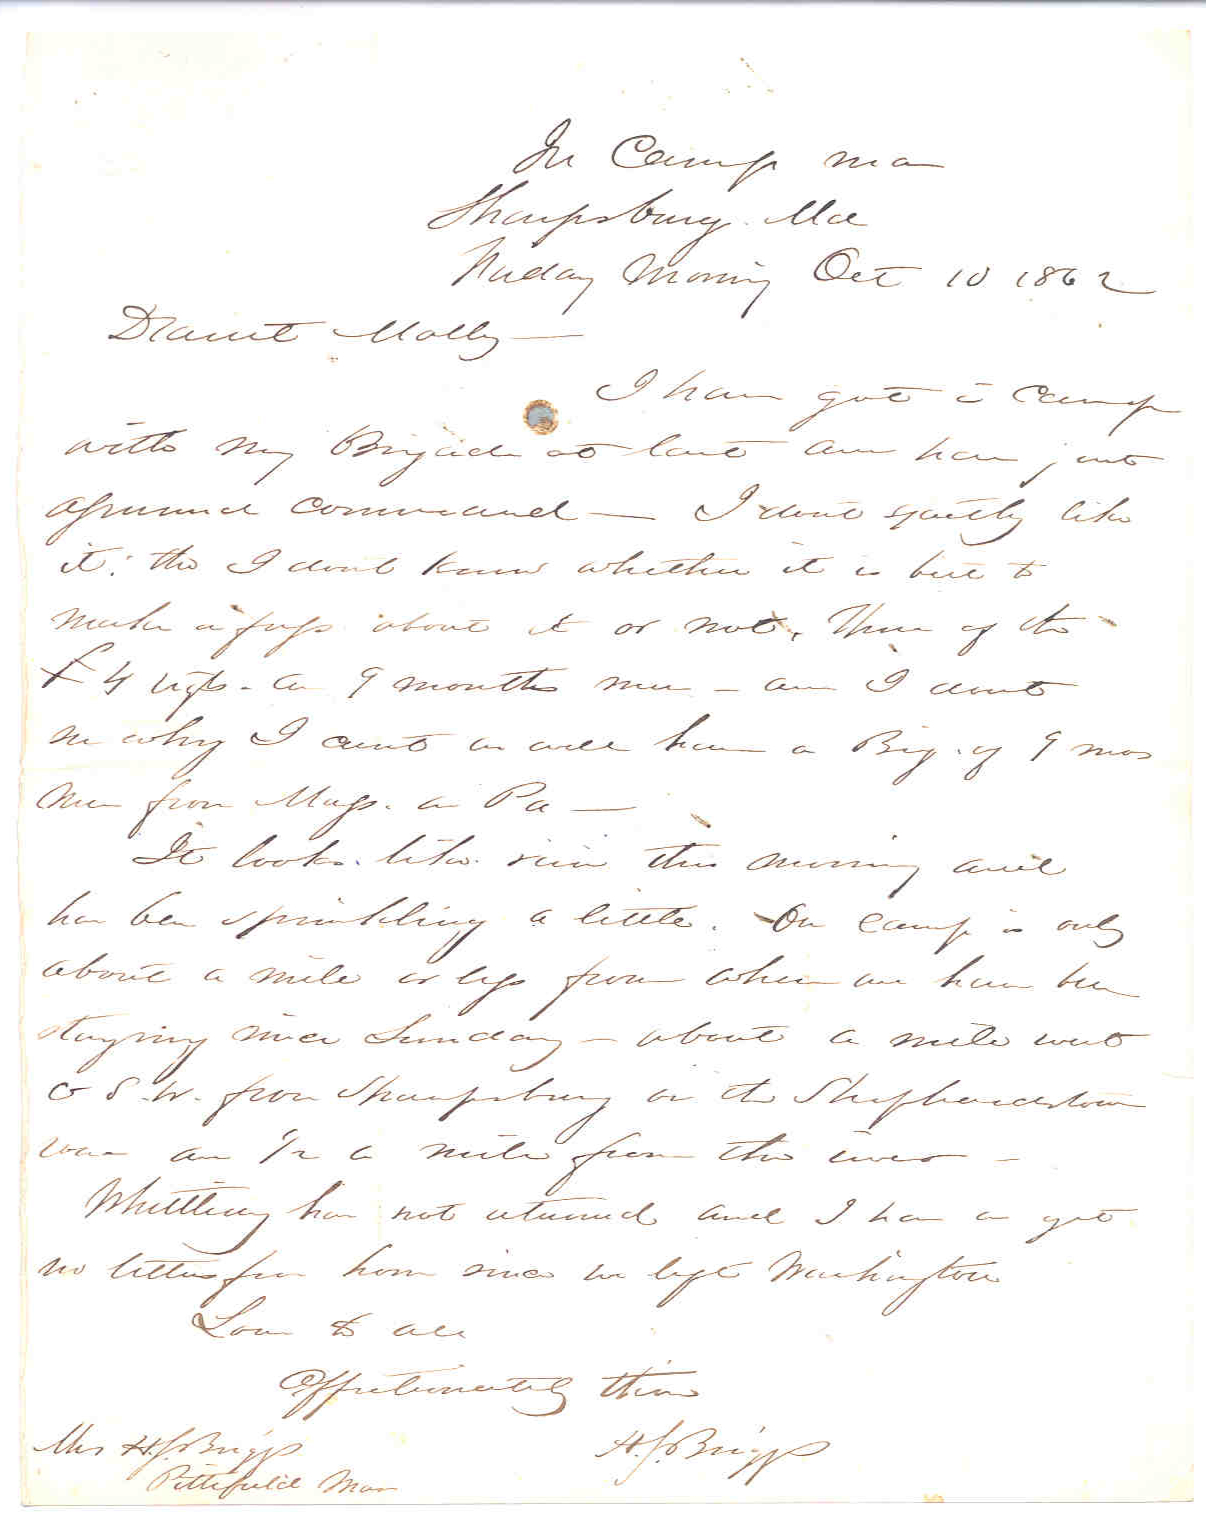 In Camp near
Sharpsburg. Md
Friday Morning Oct 10 1862
Dearest Molly —
I have got in camp
with my Brigade at last and have just
assumed command — I don't exactly like
it; tho I don't know whether it is best to
make a fuss about it or not. Three of the
4 regts. are 9 months men — and I dont
see why I cant as well have a Brig. of 9 mos
men from Mass. as Pa —
It looks like rain this morning and
has been sprinkling a little. Our camp is only
about a mile or less from where we have been
staying since Sunday — about a mile west
or S.W. from Sharpsburg on the Shepherdstown
road and 1/2 a mile from the river —
Whittlesey has not returned and I have as yet
no letters from home since we left Washington
Love to all
Affectionately thine
H.S. Briggs
Mrs H.S. Briggs
Pittsfield Mass